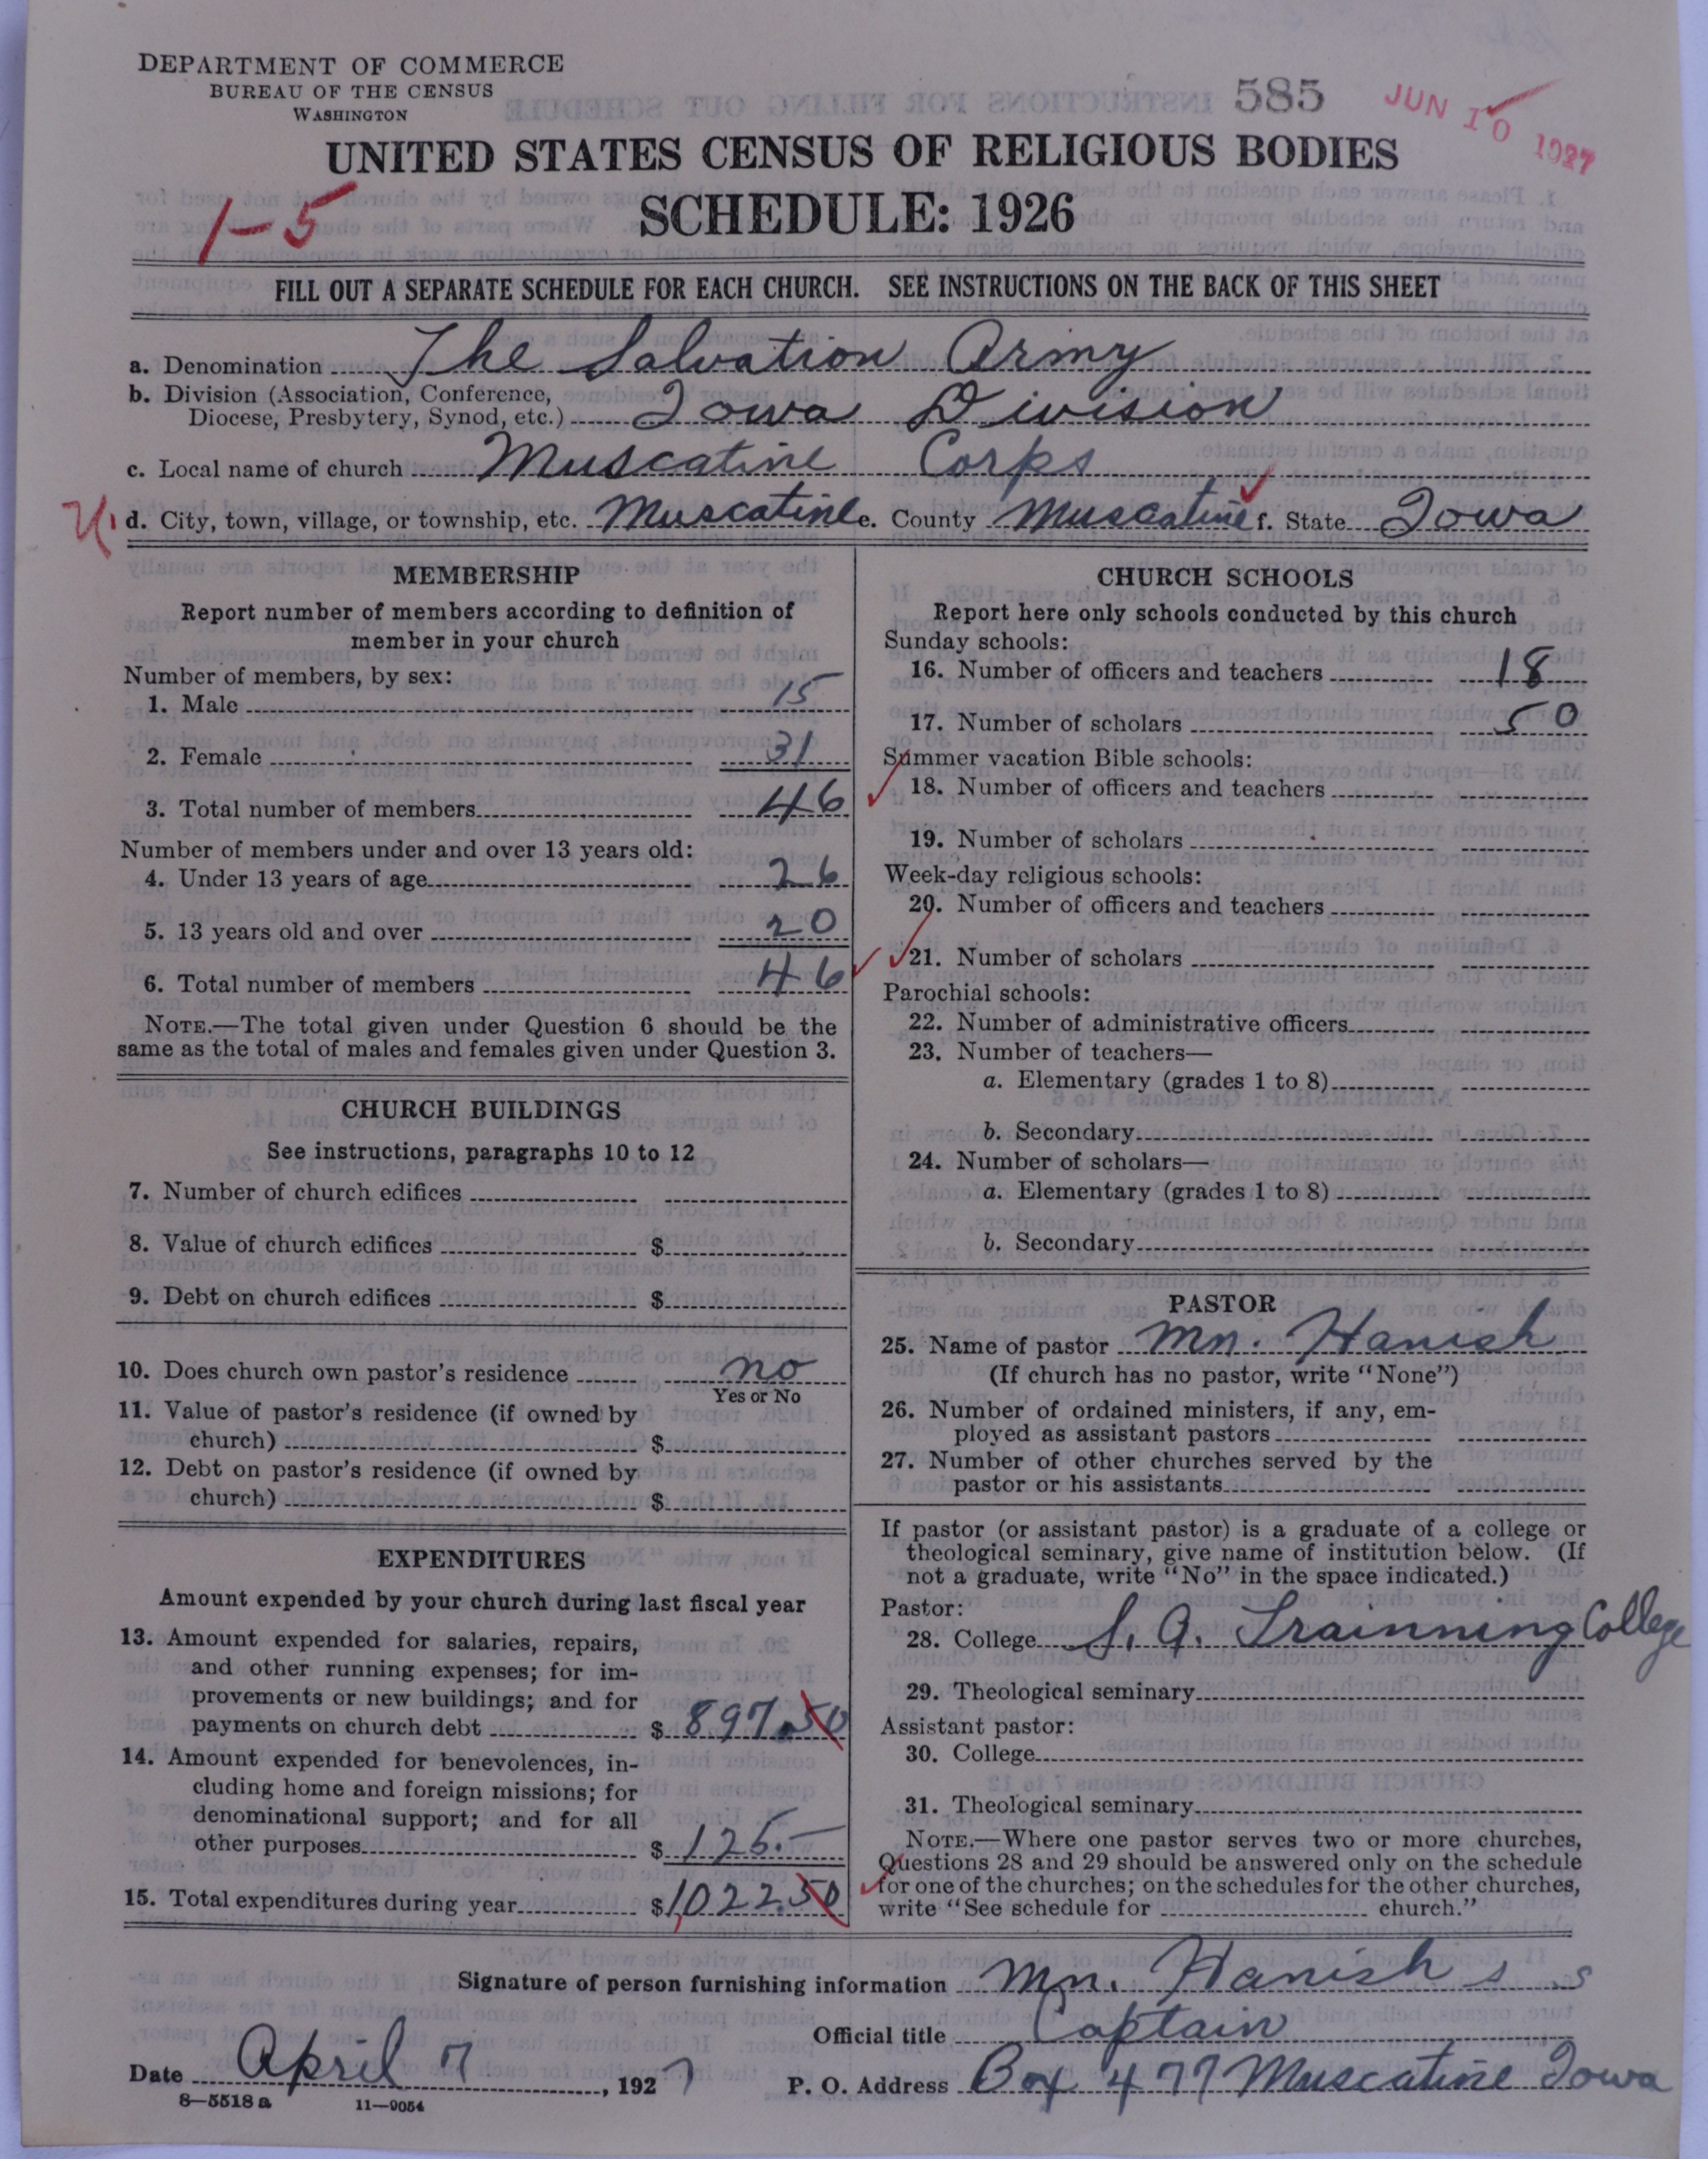 DEPARTMENT OF COMMERCE
BUREAU OF THE CENSUS
WASHINGTON
585
JUN 10 1927
UNITED STATES CENSUS OF RELIGIOUS BODIES
SCHEDULE: 1926
1-5
FILL OUT A SEPARATE SCHEDULE FOR EACH CHURCH. SEE INSTRUCTIONS ON THE BACK OF THIS SHEET
a. Denomination The Salvation Army
b. Division (Association, Conference,
Diocese, Presbytery, Synod, etc.) Iowa Division
c. Local name of church Muscatine Corps
d. City, town, village, or township, etc. Muscatine e. County Muscatine f. State Iowa
MEMBERSHIP
Report number of members according to definition of
member in your church
Number of members, by sex:
1. Male 15
2. Female 31
3. Total number of members 46
Number of members under and over 13 years old:
4. Under 13 years of age 26
5. 13 years old and over 20
6. Total number of members 46
NOTE.—The total given under Question 6 should be the
same as the total of males and females given under Question 3.
CHURCH BUILDINGS
See instructions, paragraphs 10 to 12
7. Number of church edifices
8. Value of church edifices $
9. Debt on church edifices $
10. Does church own pastor's residence no
Yes or No
11. Value of pastor's residence (if owned by
church) $
12. Debt on pastor's residence (if owned by
church) $
EXPENDITURES
Amount expended by your church during last fiscal year
13. Amount expended for salaries, repairs,
and other running expenses; for im-
provements or new buildings; and for
payments on church debt $ 897.50
14. Amount expended for benevolences, in-
cluding home and foreign missions; for
denominational support; and for all
other purposes $ 125.-
15. Total expenditures during year $1,022.50
CHURCH SCHOOLS
Report here only schools conducted by this church
Sunday schools:
16. Number of officers and teachers 18
17. Number of scholars 50
Summer vacation Bible schools:
18. Number of officers and teachers
19. Number of scholars
Week-day religious schools:
20. Number of officers and teachers
21. Number of scholars
Parochial schools:
22. Number of administrative officers
23. Number of teachers—
a. Elementary (grades 1 to 8)
b. Secondary
24. Number of scholars—
a. Elementary (grades 1 to 8)
b. Secondary
PASTOR
25. Name of pastor Mn. Hanish
(If church has no pastor, write "None")
26. Number of ordained ministers, if any, em-
ployed as assistant pastors
27. Number of other churches served by the
pastor or his assistants
If pastor (or assistant pastor) is a graduate of a college or
theological seminary, give name of institution below. (If
not a graduate, write "No" in the space indicated.)
Pastor:
28. College S. A. Trainning College
29. Theological seminary
Assistant pastor:
30. College
31. Theological seminary
NOTE.—Where one pastor serves two or more churches,
Questions 28 and 29 should be answered only on the schedule
for one of the churches; on the schedules for the other churches,
write "See schedule for church."
Signature of person furnishing information Mn. Hanish
Official title Captain
Date April 7, 1927 P. O. Address Box 477 Muscatine Iowa
8—5518 a 11—9054